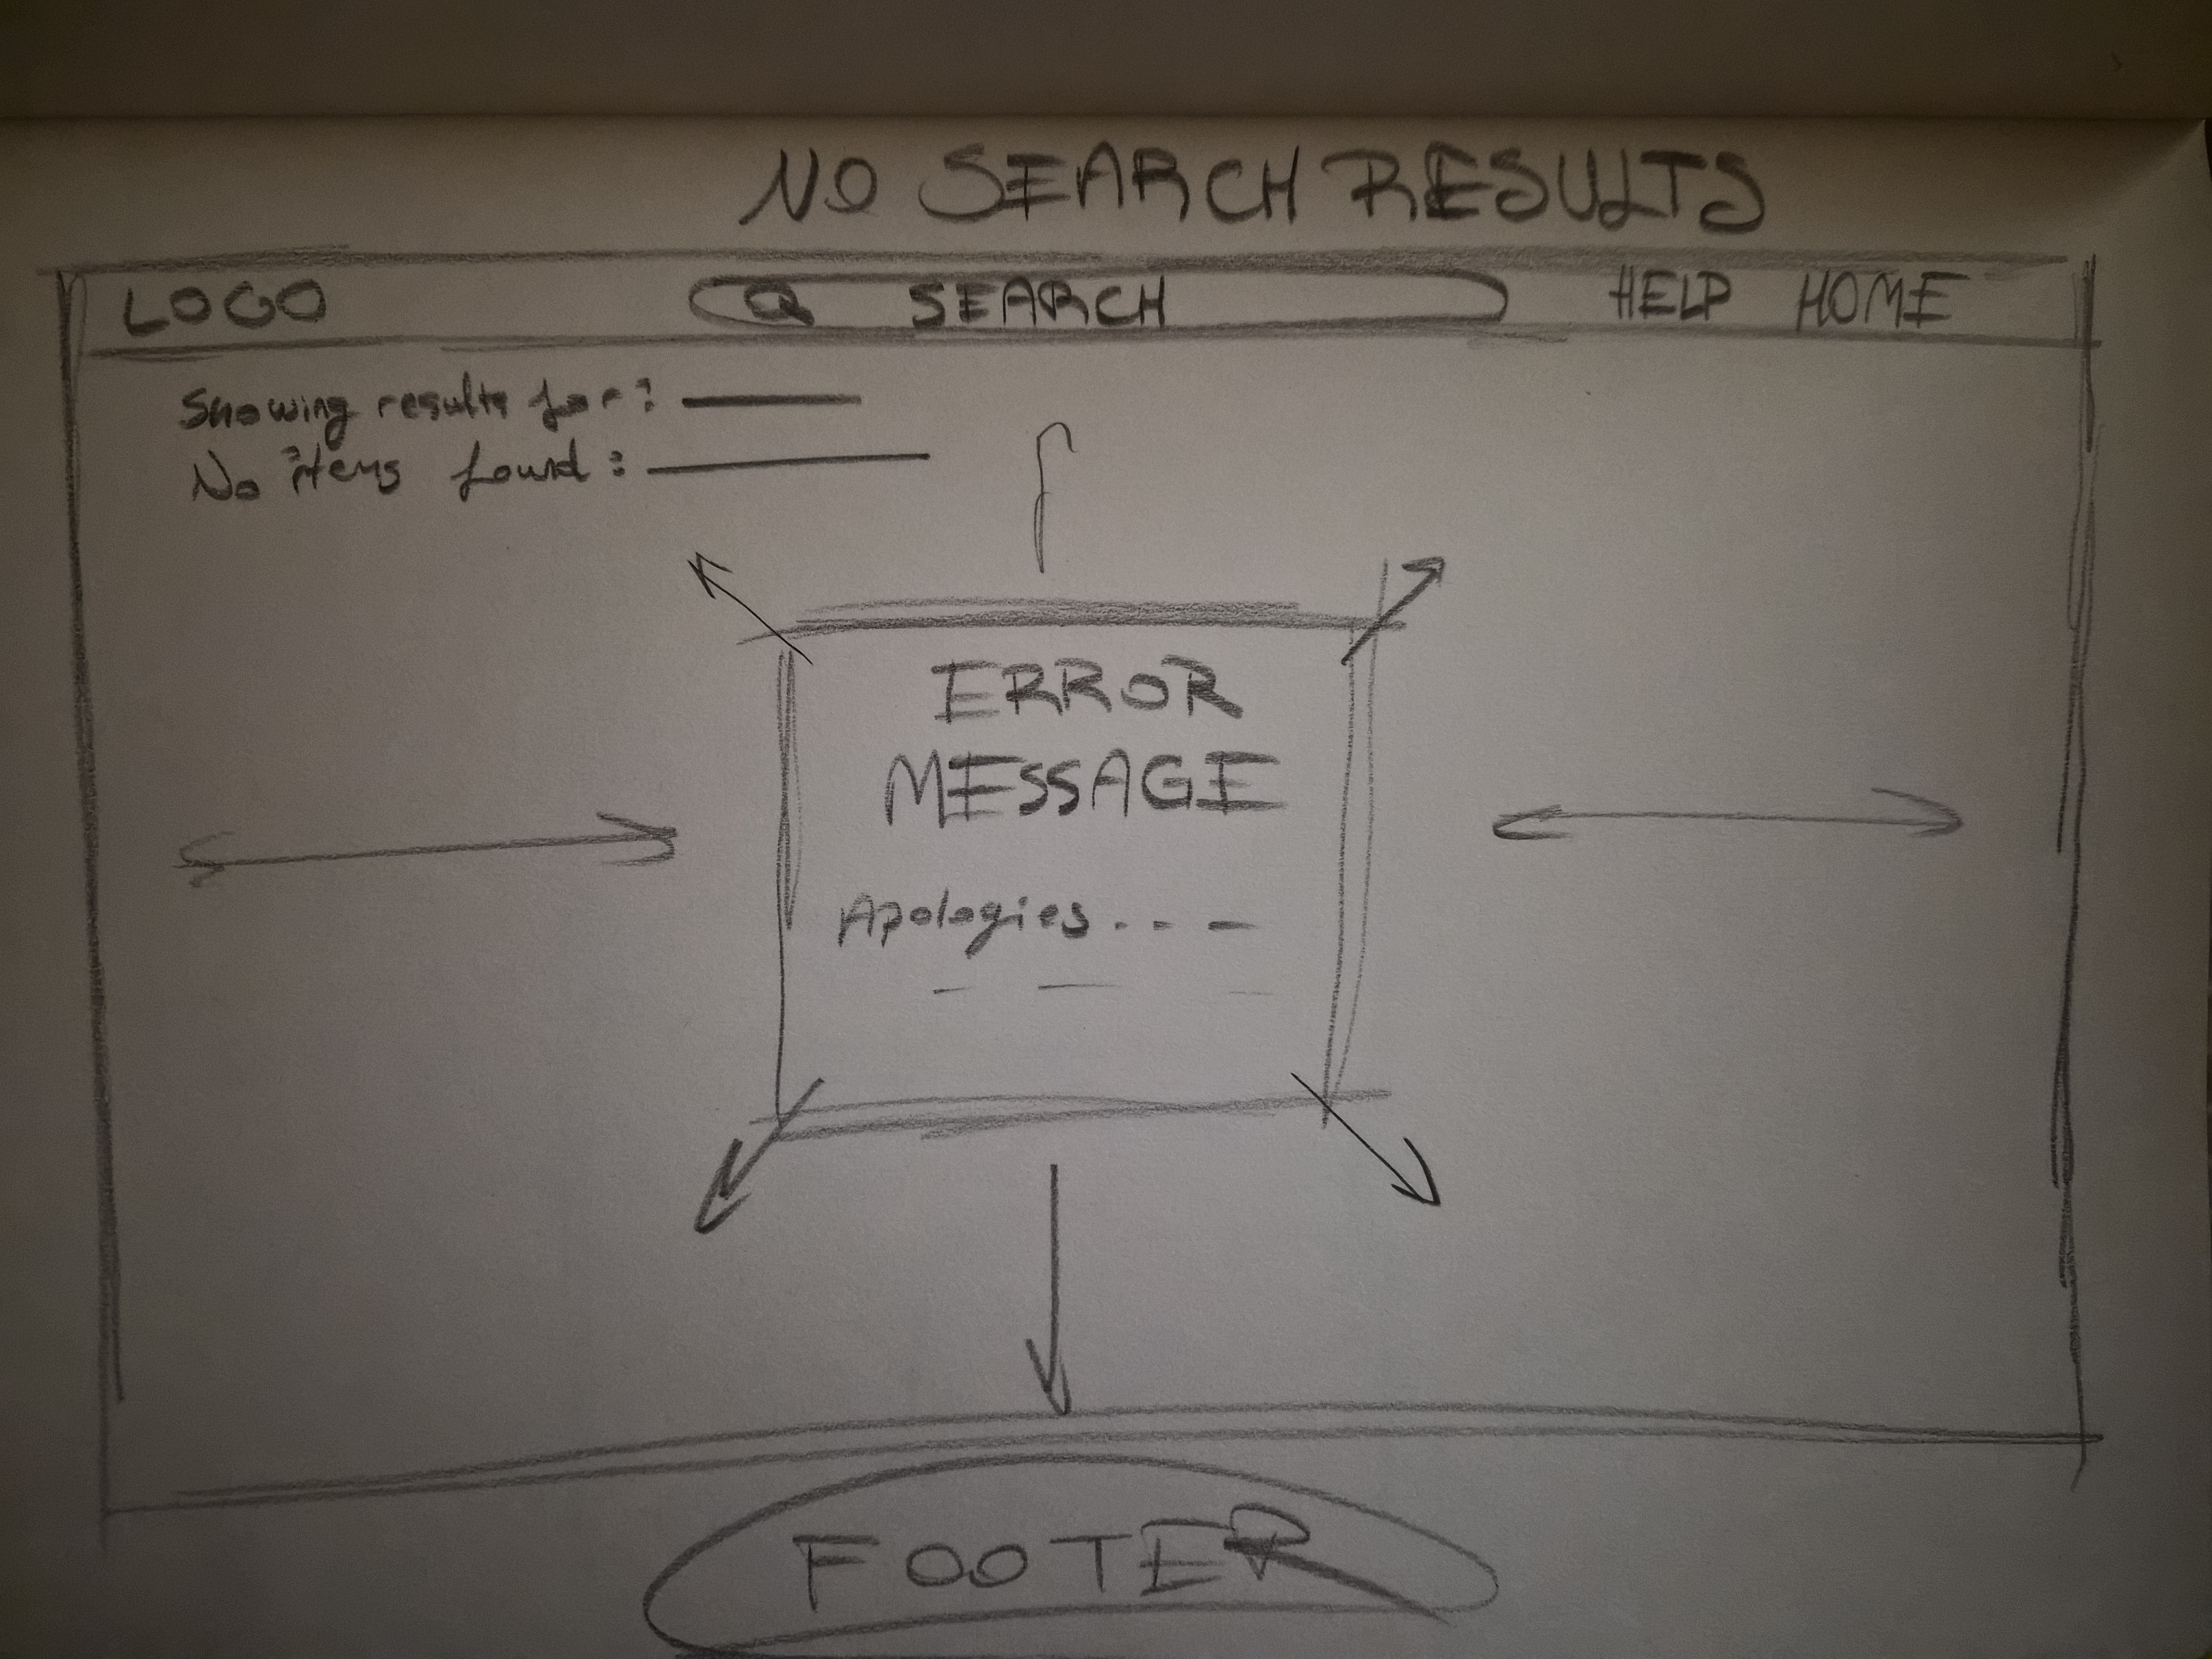 NO SEARCH RESULTS
LOGO SEARCH HELP HOME
Showing results for:
No items found:
ERROR
MESSAGE
Apologies...
FOOTER